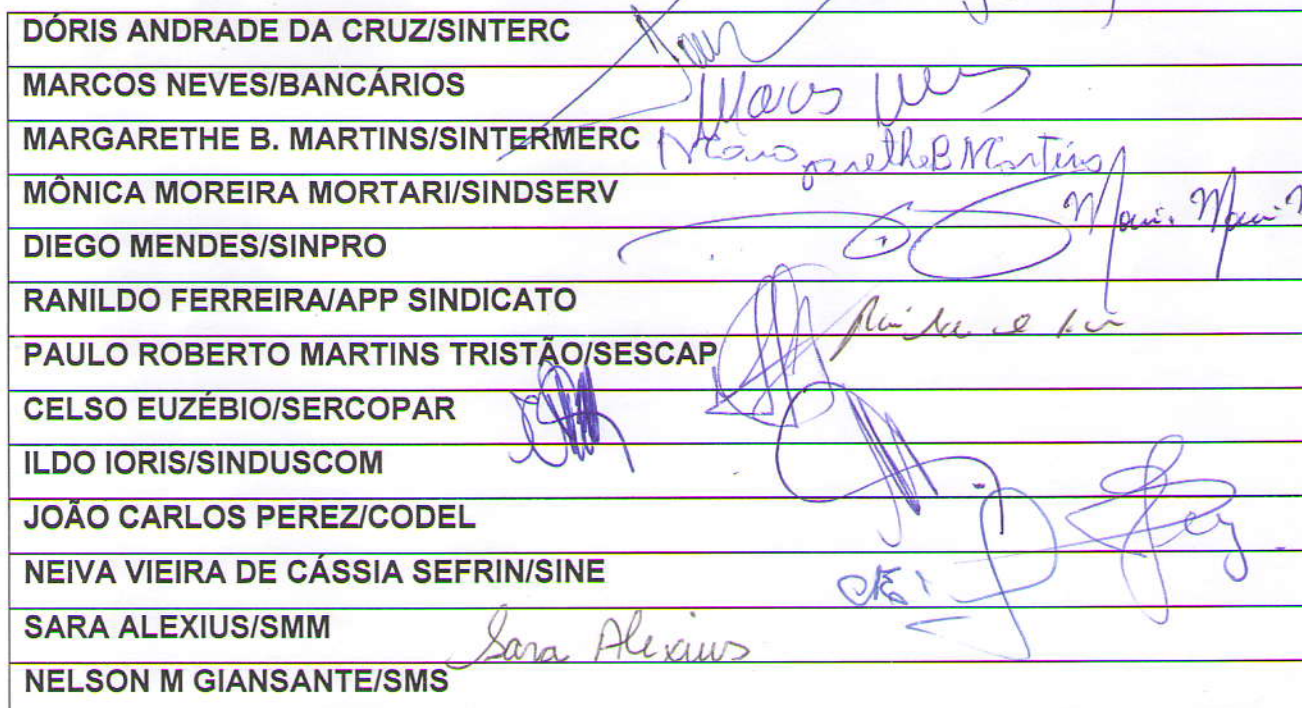 DÓRIS ANDRADE DA CRUZ/SINTERC
MARCOS NEVES/BANCÁRIOS Marcos Neves
MARGARETHE B. MARTINS/SINTERMERC Margarethe B Martins
MÔNICA MOREIRA MORTARI/SINDSERV
DIEGO MENDES/SINPRO
RANILDO FERREIRA/APP SINDICATO
PAULO ROBERTO MARTINS TRISTÃO/SESCAP
CELSO EUZÉBIO/SERCOPAR
ILDO IORIS/SINDUSCOM
JOÃO CARLOS PEREZ/CODEL
NEIVA VIEIRA DE CÁSSIA SEFRIN/SINE
SARA ALEXIUS/SMM Sara Alexius
NELSON M GIANSANTE/SMS